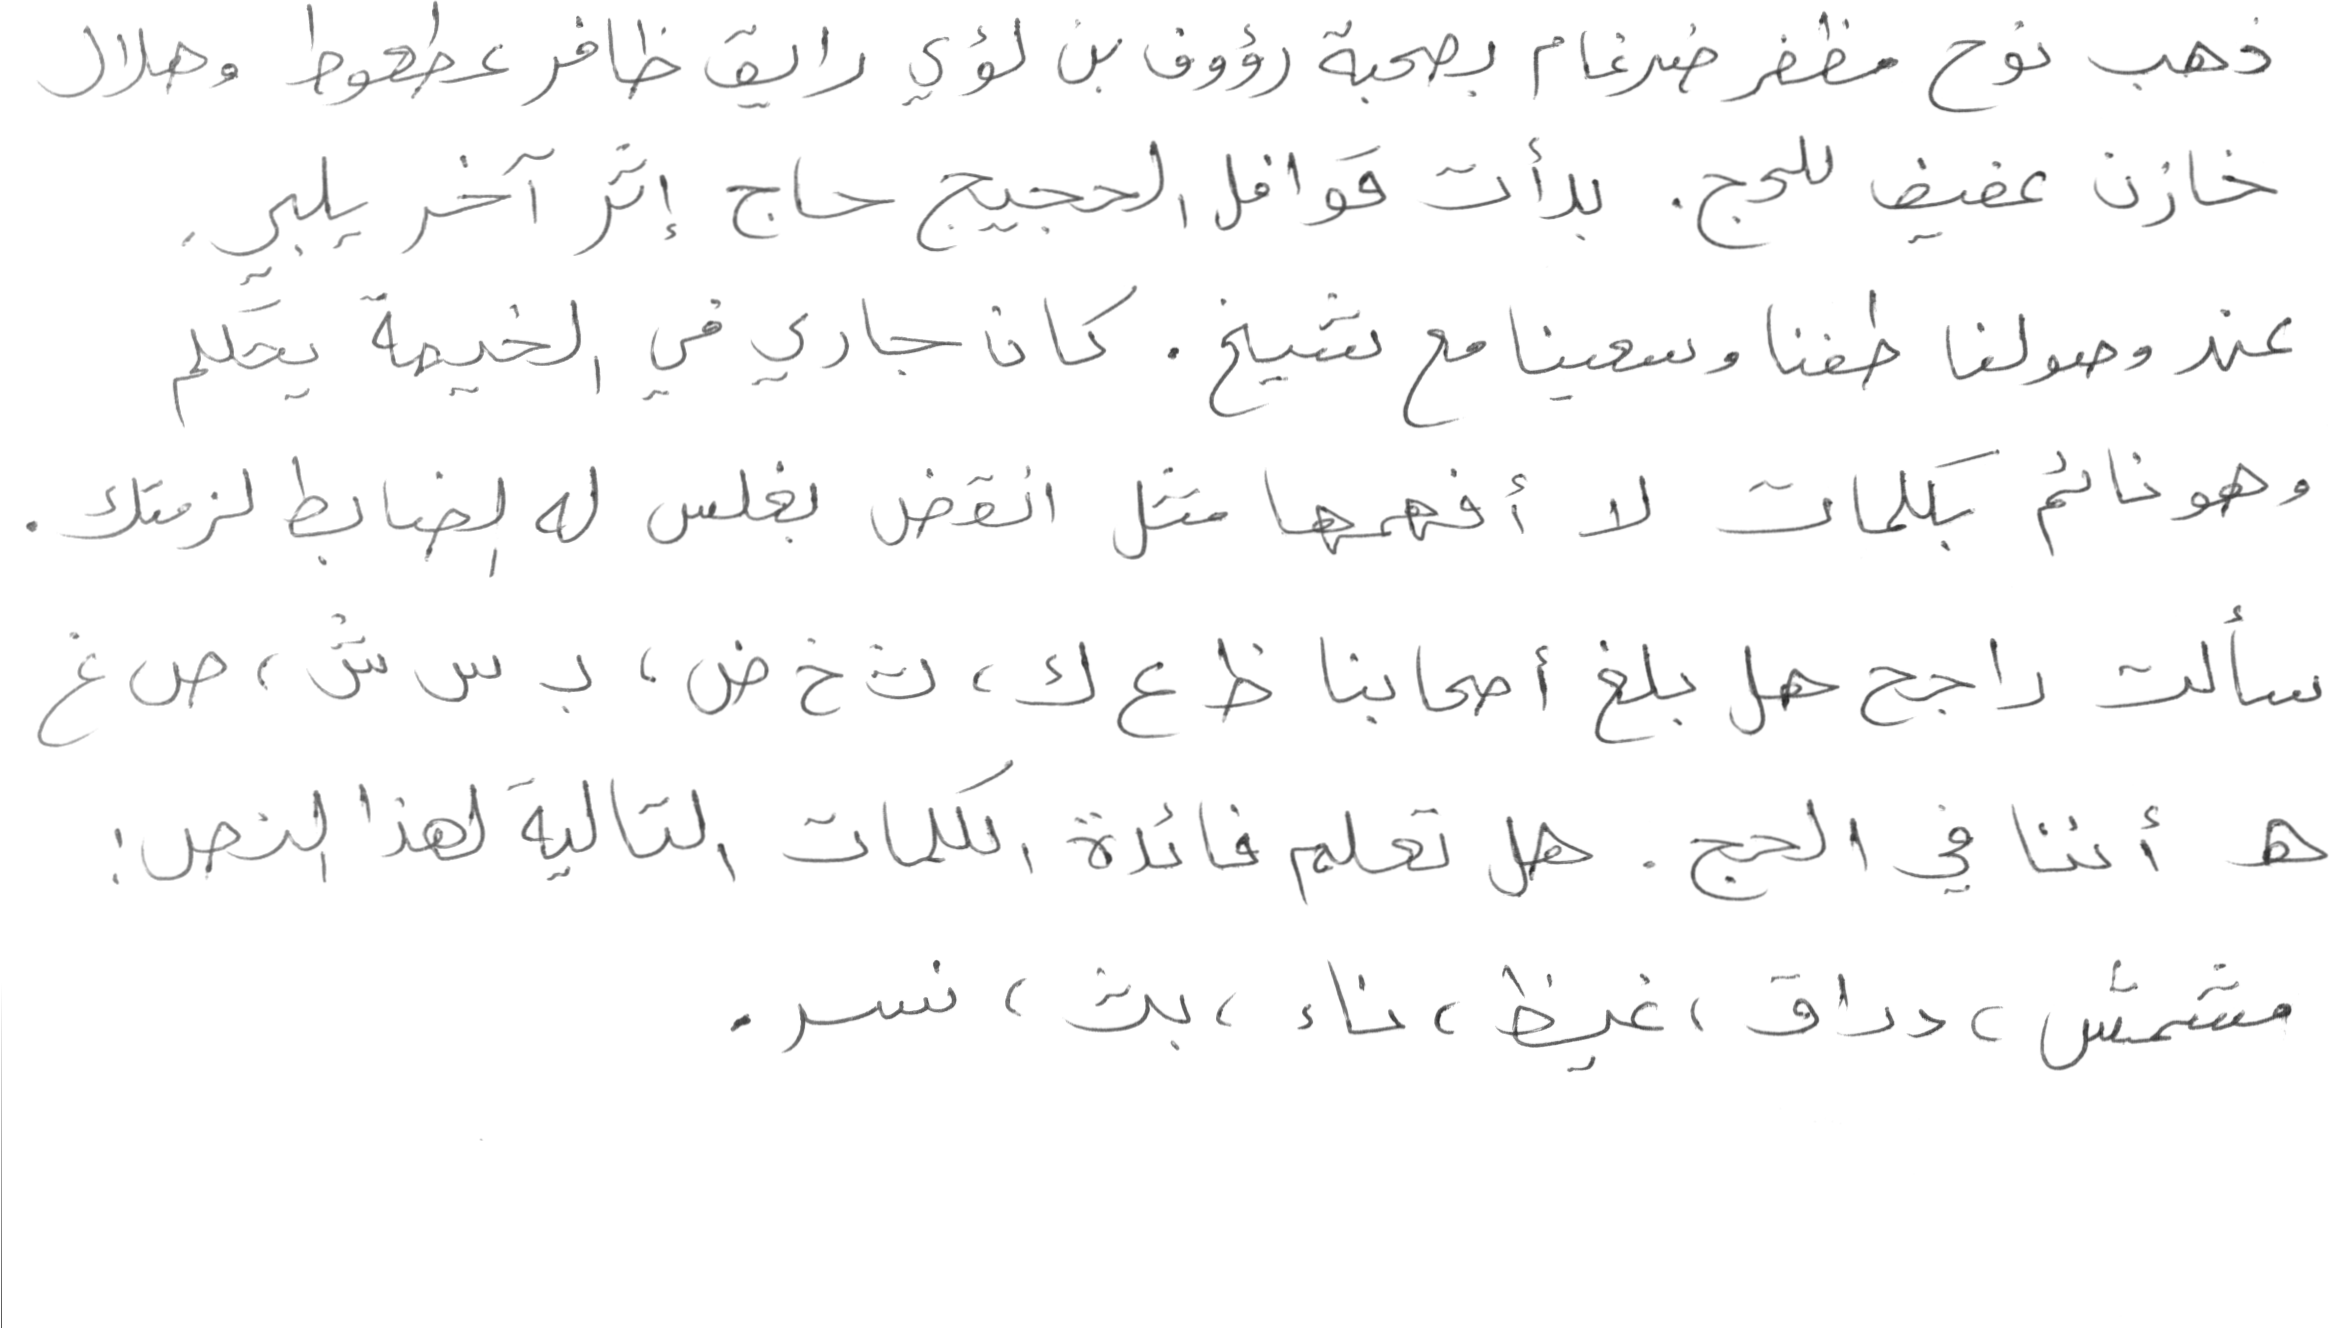 ذهب نوح مظفر ضرغام بصحبة رؤوف بن لؤي رايق ظافر عطعوط وهلال
خازن عفيف للحج. بدأت قوافل الحجيج حاج إثر آخر يلبي.
عند وصولنا طفنا وسعينا مع شيخ. كان جاري في الخيمة يتكلم
وهو نائم بكلمات لا أفهمها مثل انقض بغلس له إضابط لزمتك.
سألت راجح هل بلغ أصحابنا ظ ع ك، ث خ ض، ب س ش، ص غ
هـ أننا في الحج. هل تعلم فائدة الكلمات التالية لهذا النص:
مشمش، دراق، غيظ، ناء، بث، نسر.